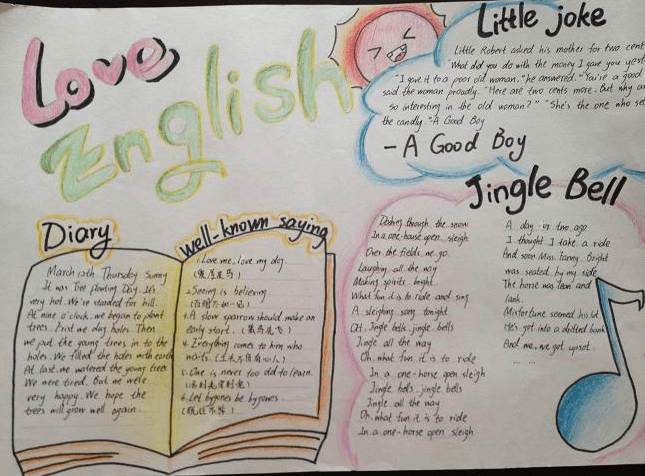 Love
English
Little joke
Little Robert asked his mother for two cent
"What did you do with the money I gave you yest
"I gave it to a poor old woman," he answered. "You're a good
said the woman proudly. "Here are two cents more. But why ar
so interesting in the old woman?" "She's the one who sel
the candly." -A Good Boy
-A Good Boy
Diary
March 12th Thursday Sunny
It was Tree planting Day. It's
very hot. We're standed for hill.
At nine o'clock, we began to plant
trees. First we dug holes. Then
we put the young trees in to the
holes. We filled the holes with earth
At last we watered the young trees
We were tired. But we were
very happy. We hope the
trees will grow well again.
well-known saying
1. Love me, love my dog.
(爱屋及乌)
2. Seeing is believing.
(百闻不如一见)
3. A slow sparrow should make an
early start. (笨鸟先飞)
4. Everything comes to him who
waits.
5. One is never too old to learn.
(活到老学到老)
6. Let bygones be bygones.
(既往不咎)
Jingle Bell
Dashing through the snow
In a one-horse open sleigh
Over the fields we go
Laughing all the way
Making spirits bright
What fun it is to ride and sing
A sleighing song tonight
OH, Jingle bells, jingle bells
Jingle all the way
Oh, what fun it is to ride
In a one-horse open sleigh
Jingle bells, jingle bells
Jingle all the way
Oh, what fun it is to ride
In a one-horse open sleigh
A day or two ago
I thought I take a ride
And soon Miss Fanny Bright
was seated by my side
The horse was lean and
lank
Misfortune seemed his lot
He's got into a drifted bank
And we, we got upset
... ...